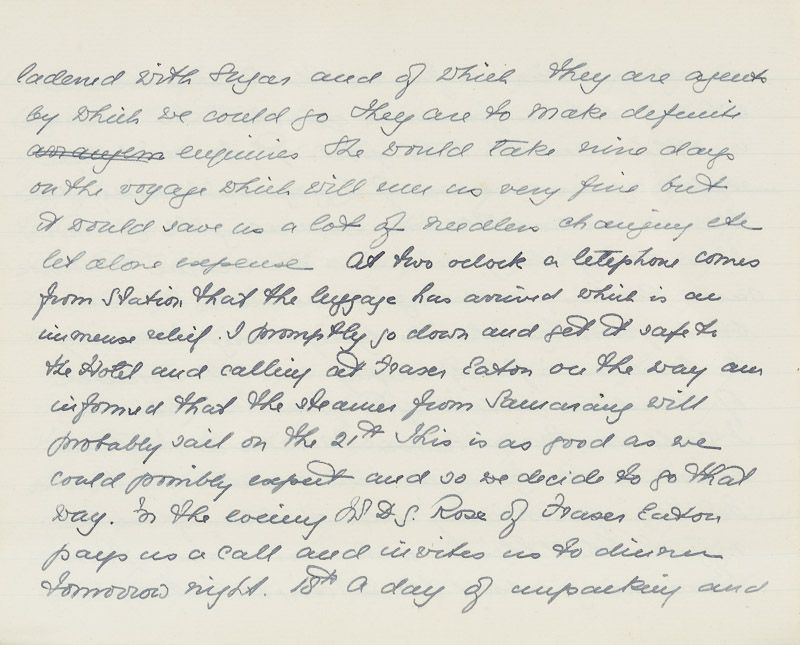 ladened with Sugar and of which they are agents
by which we could go They are to make definite
arrangem enquiries She would take nine days
on the voyage which will run us very fine but
it would save us a lot of needless changing etc
let alone expense At two oclock a telephone comes
from Station that the luggage has arrived which is an
immense relief. I promptly go down and get it safe to
the Hotel and calling at Fraser Eaton on the way am
informed that the steamer from Samarang will
probably sail on the 21st This is as good as we
could possibly expect and so we decide to go that
way. In the evening D. S. Rose of Fraser Eaton
pays us a call and invites us to dinner
tomorrow night. 18th A day of unpacking and